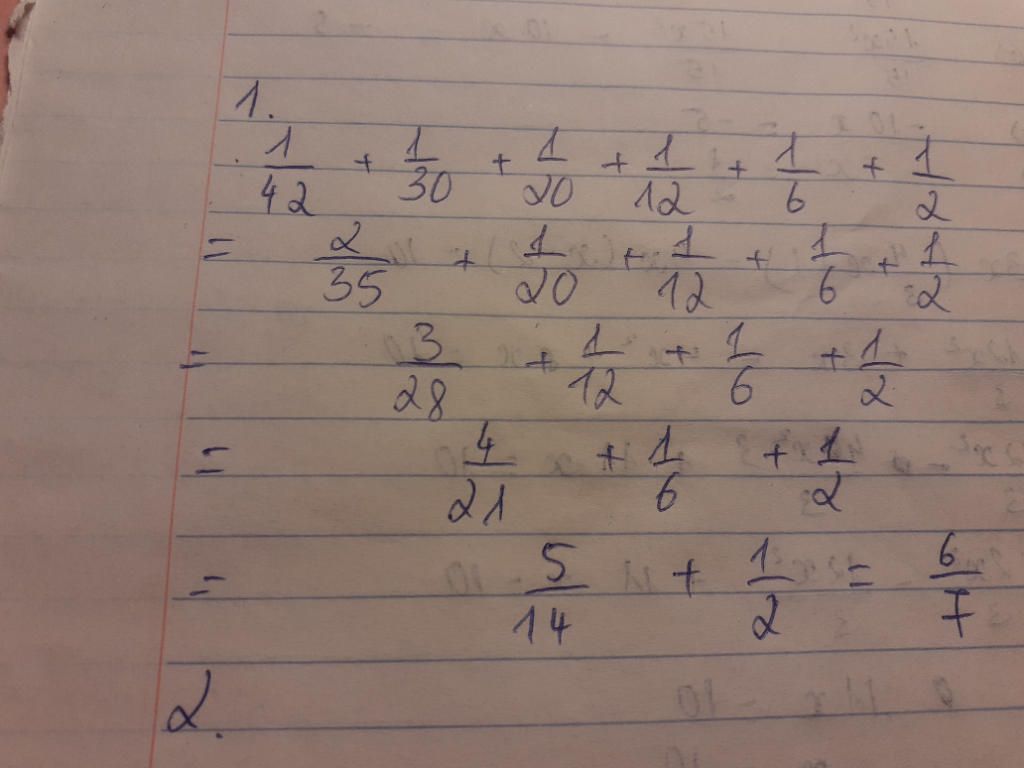 1.
1/42 + 1/30 + 1/20 + 1/12 + 1/6 + 1/2
= 2/35 + 1/20 + 1/12 + 1/6 + 1/2
= 3/28 + 1/12 + 1/6 + 1/2
= 4/21 + 1/6 + 1/2
= 5/14 + 1/2 = 6/7
2.